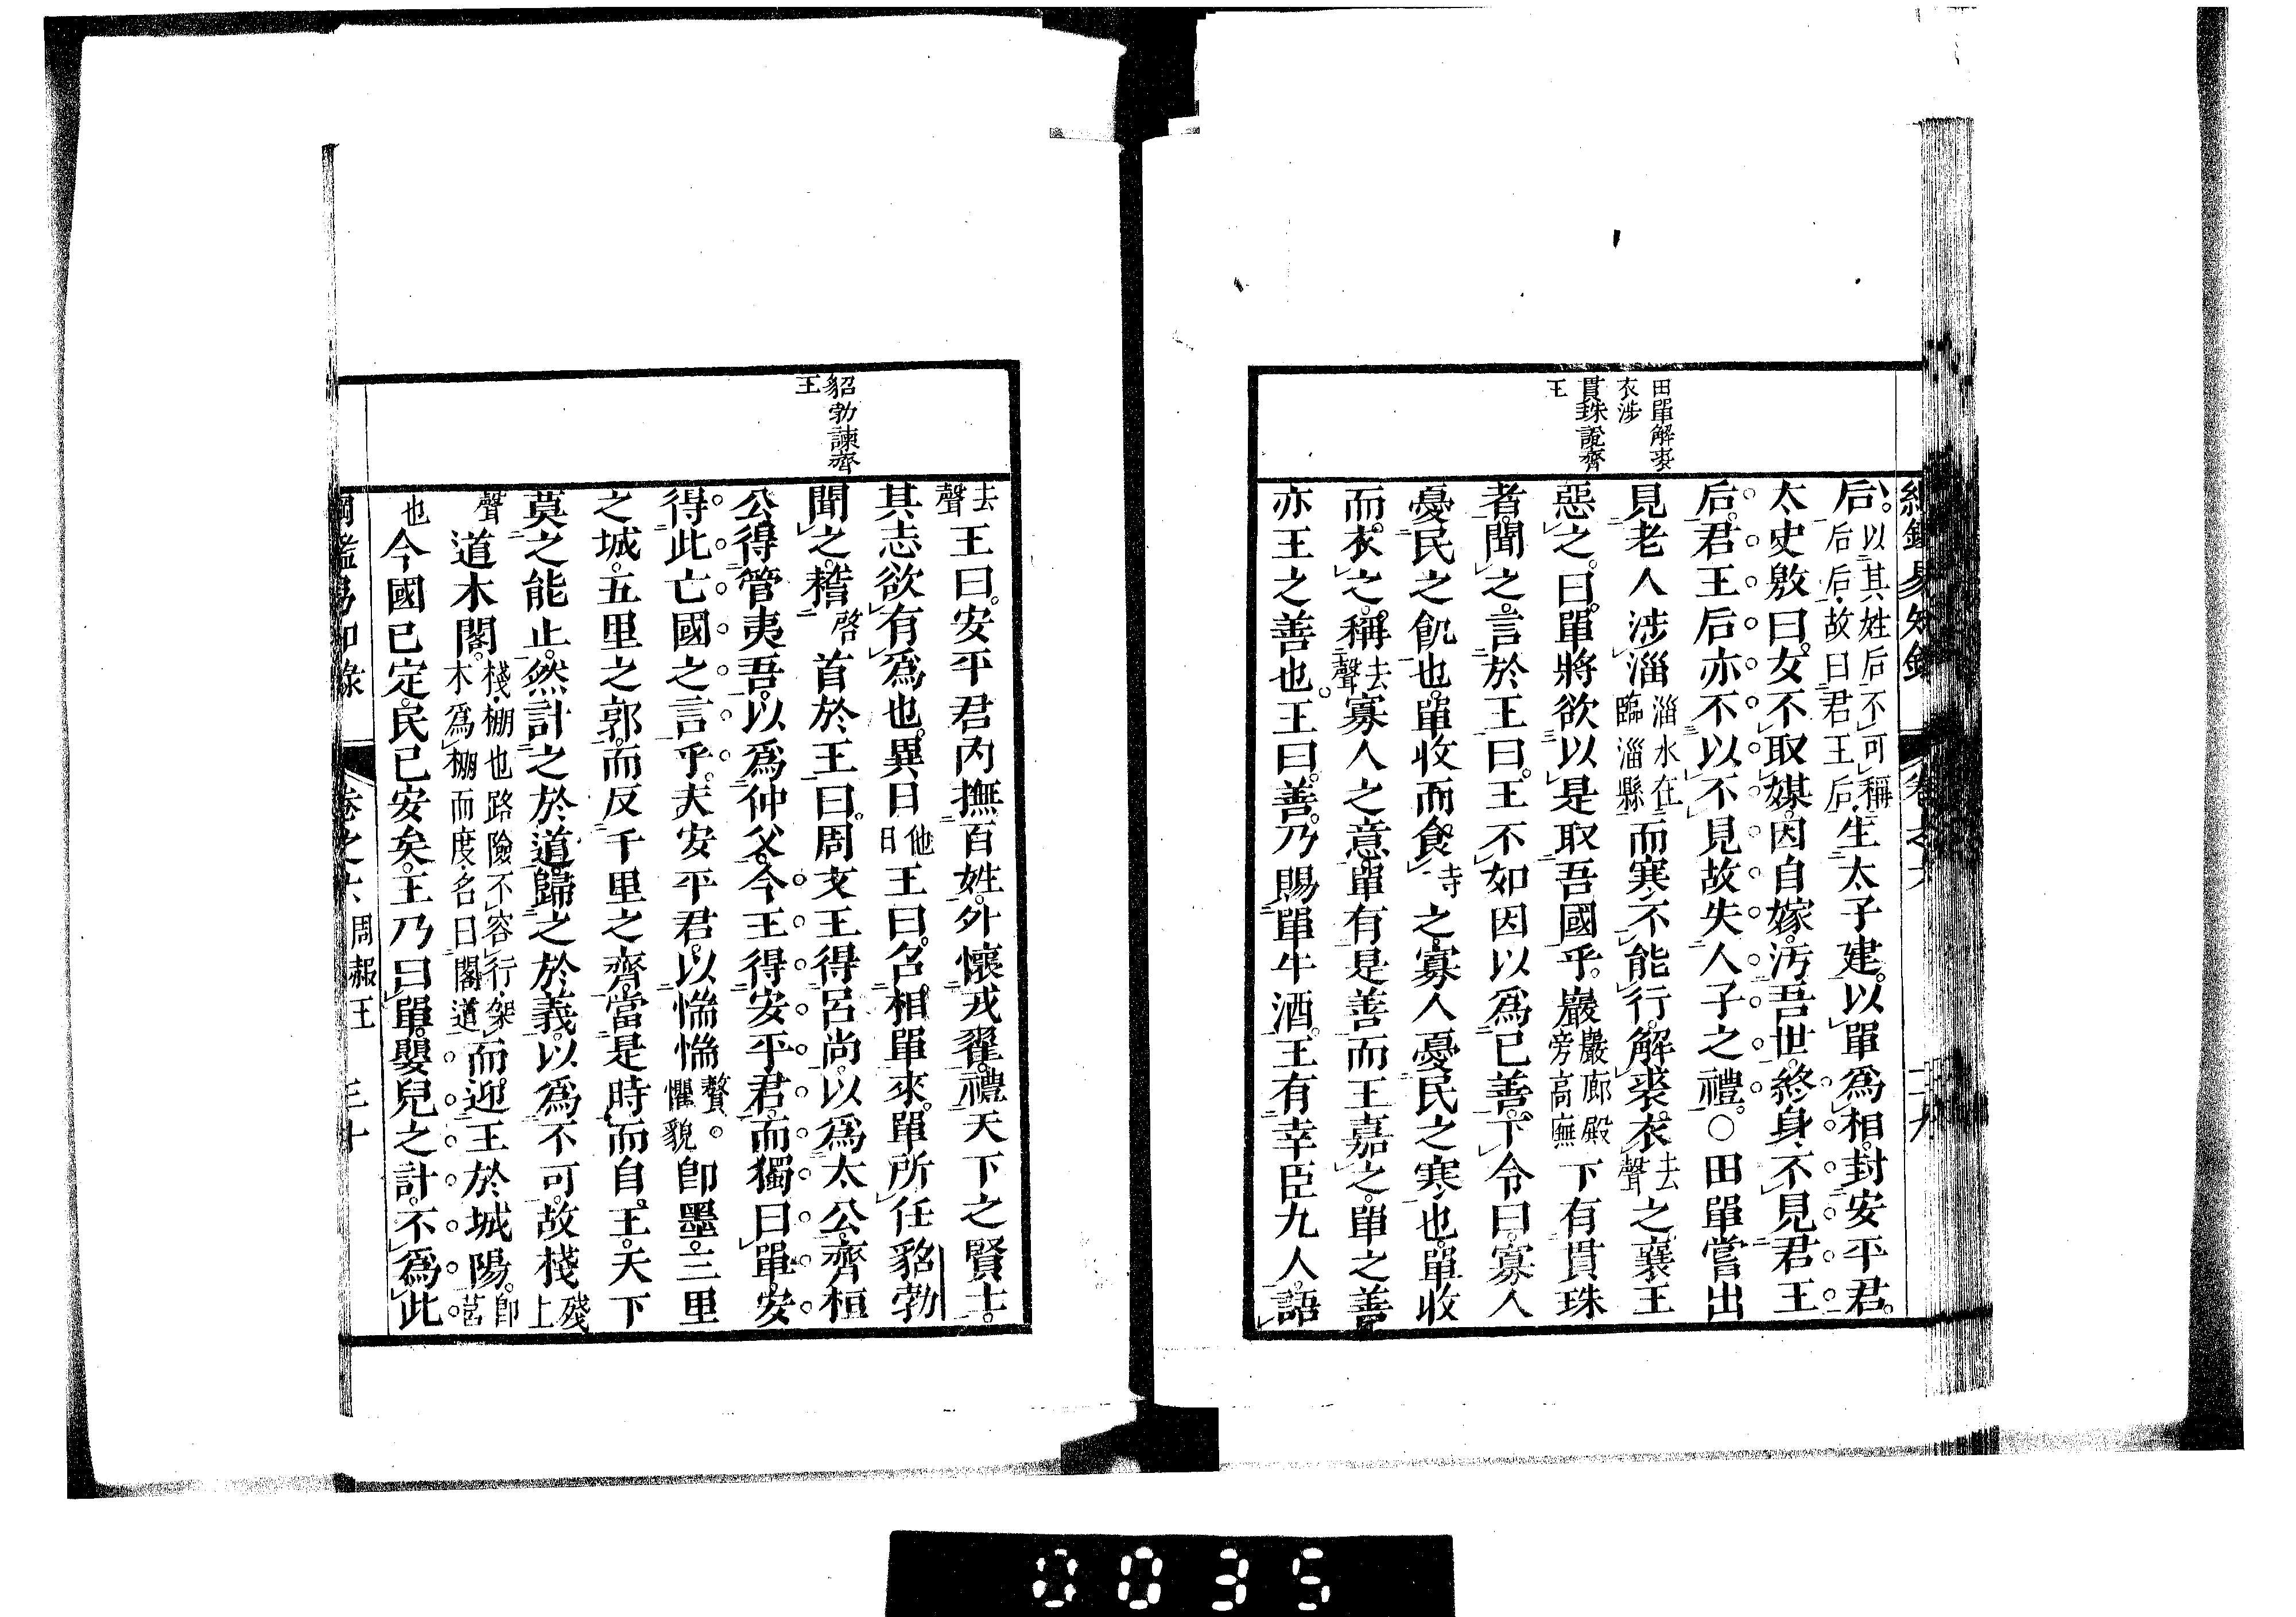 田單解裘
衣涉
貫珠說齊
王
后。以其姓后不可稱后后后故曰君王后生太子建。以單爲相。封安平君。
太史敫曰。女不取媒。因自嫁。汚吾世。終身不見君王
后。君王后亦不以不見故失人子之禮。○田單嘗出
見老人涉淄淄水在臨淄縣而寒不能行。解裘衣去聲之襄王
惡之。曰。單將欲以是取吾國乎。巖巖廊殿旁高廡下有貫珠
者。聞之。言於王曰。王不如因以爲已善。下令曰。寡人
憂民之飢也。單收而食寺之。寡人憂民之寒也。單收
而衣之。稱去聲寡人之意。單有是善而王嘉之。單之善
亦王之善也。王曰。善。乃賜單牛酒。王有幸臣九人。語
貂勃諫齊
王
去聲王曰。安平君內撫百姓。外懷戎翟。禮天下之賢士。
其志欲有爲也。異日他日王曰。召相單來。單所任貂勃
聞之。稽啓首於王曰。周文王得呂尚。以爲太公。齊桓
公得管夷吾。以爲仲父。今王得安平君。而獨曰單。安
得此亡國之言乎。夫安平君。以惴惴贅。懼貌卽墨。三里
之城。五里之郭。而反千里之齊。當是時。而自王。天下
莫之能止。然計之於道。歸之於義。以爲不可。故棧殘上
聲道木閣。棧棚也路險不容行架木爲棚而度名曰閣道而迎王於城陽。卽莒
也今國已定。民已安矣。王乃曰單。嬰兒之計。不爲此
綱鑑易知錄 卷之六 周赧王 三十